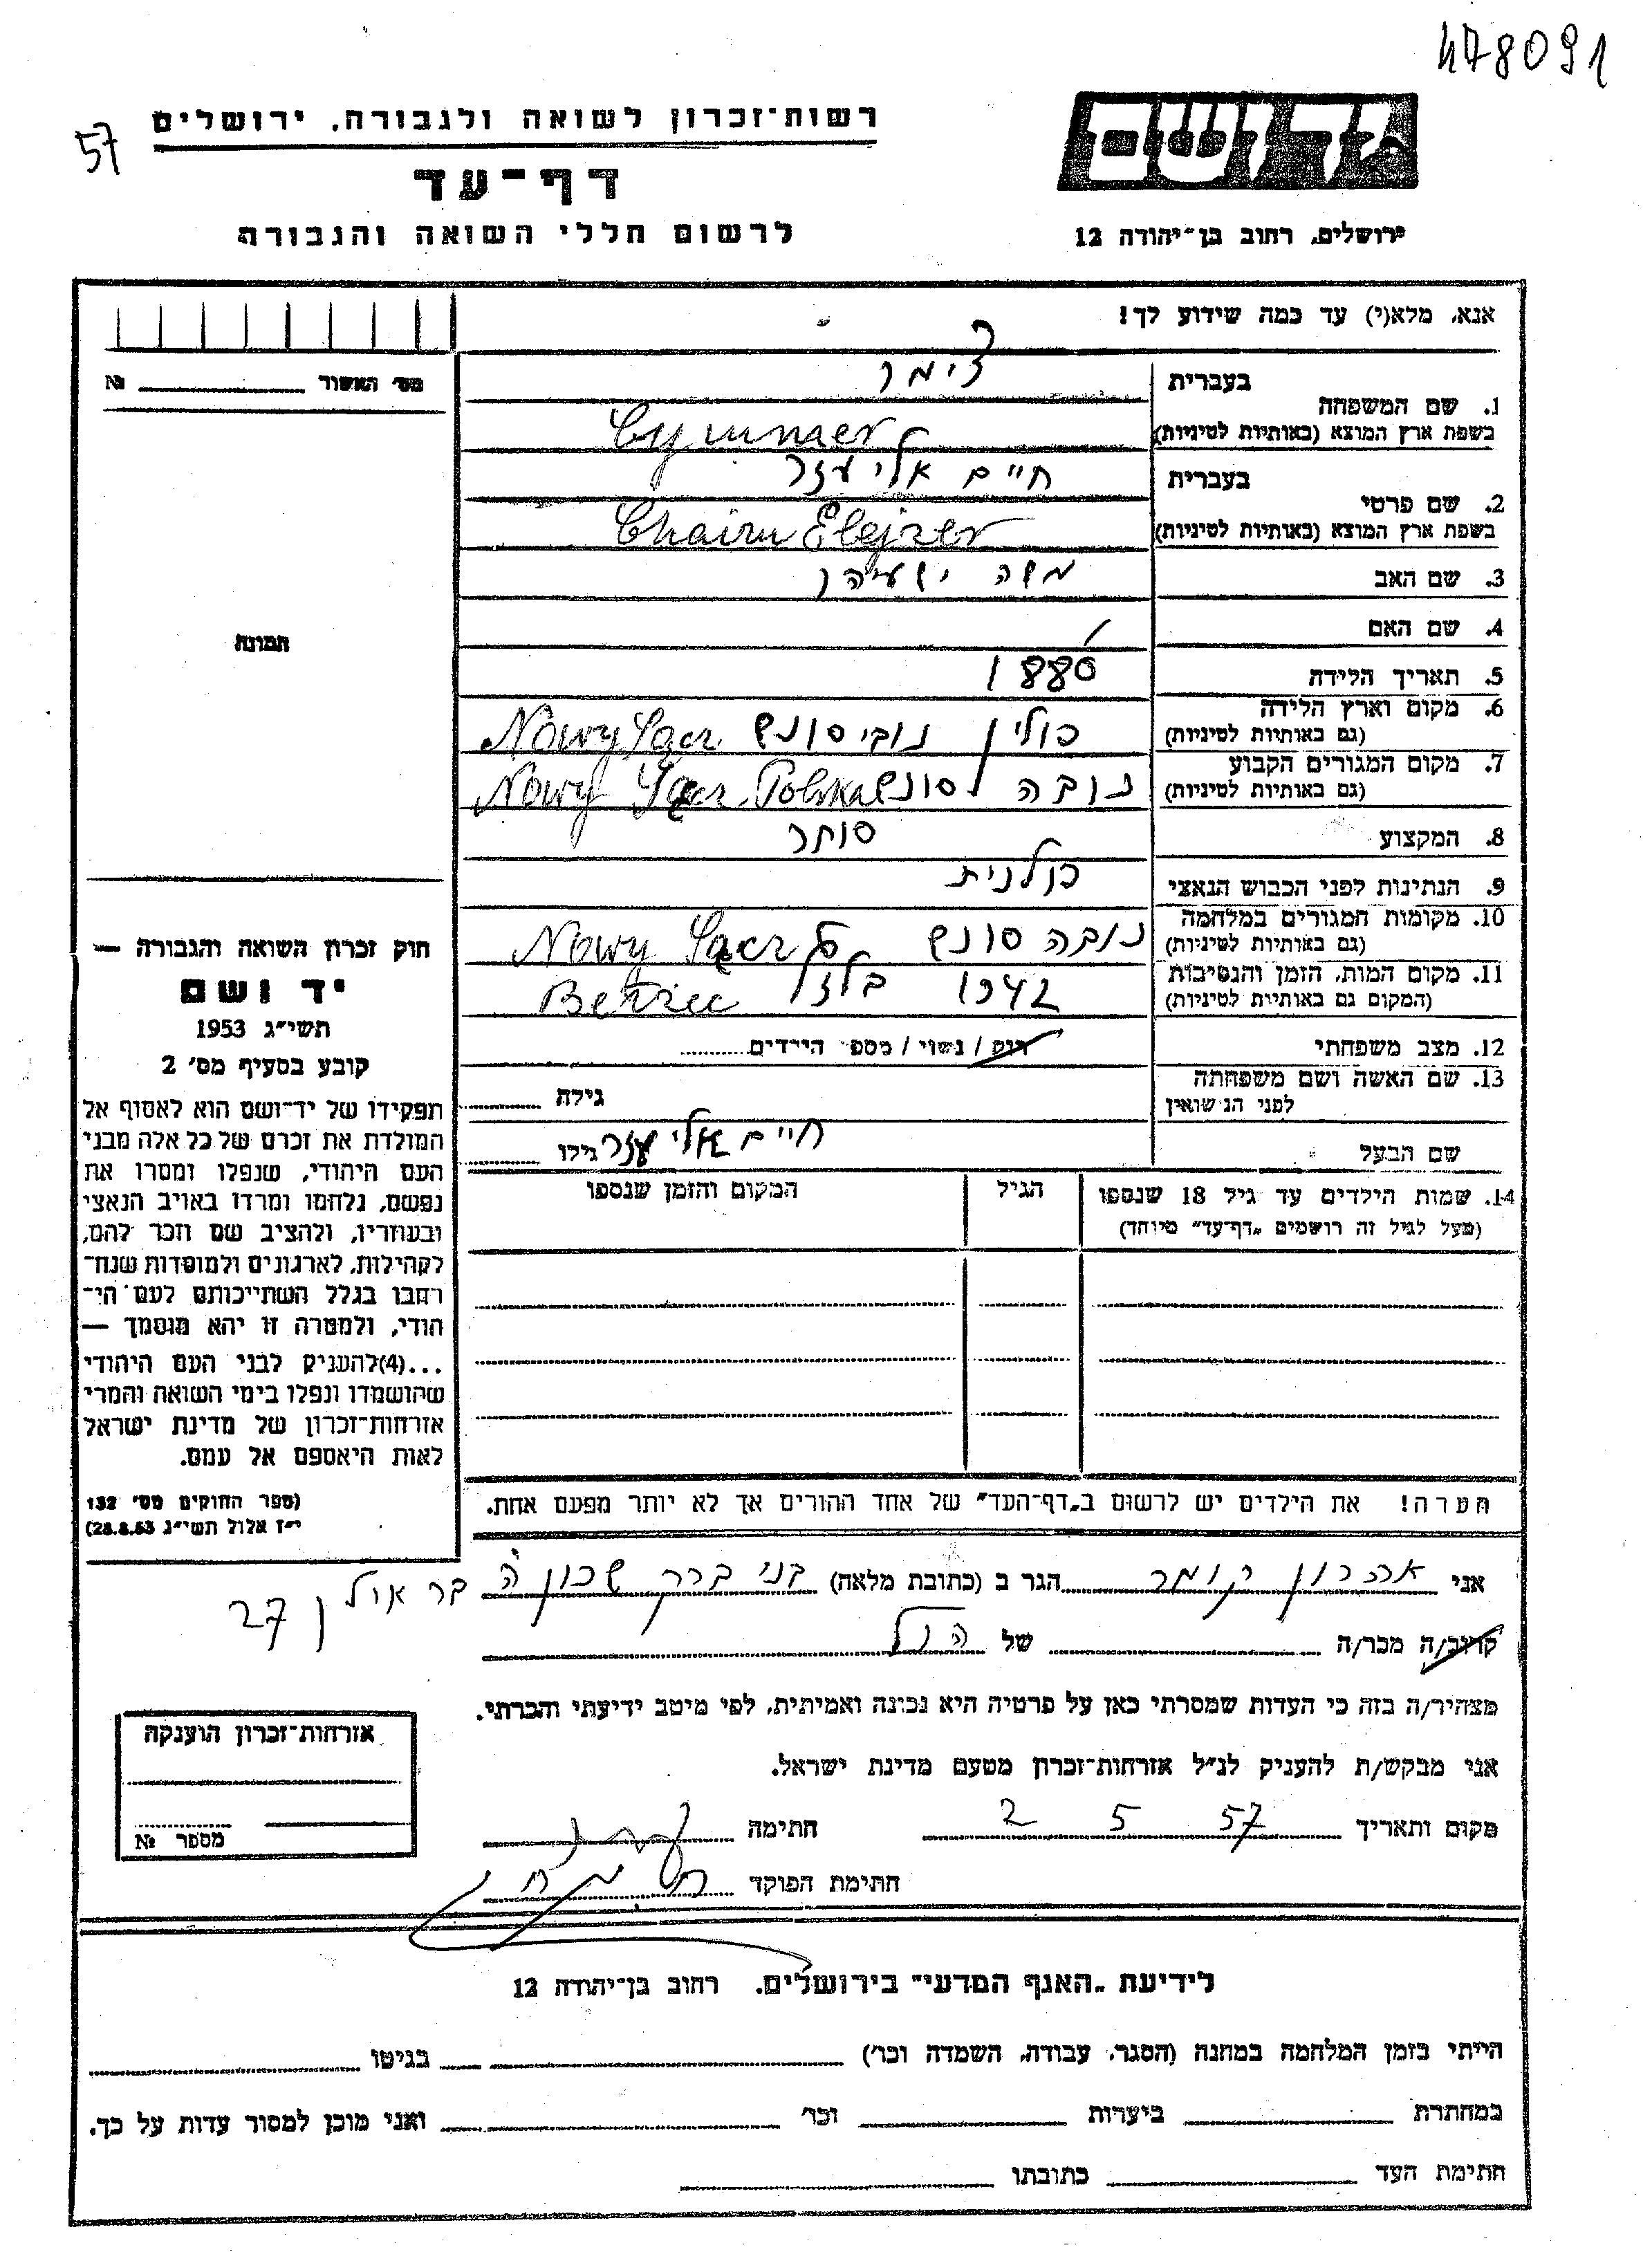 478091
57
רשות־זכרון לשואה ולגבורה, ירושלים
יד ושם
דף־עד
לרשום חללי השואה והגבורה
ירושלים, רחוב בן־יהודה 12
אנא, מלא(י) עד כמה שידוע לך!
מס׳ האשור № 
1. שם המשפחה
בעברית צימר
בשפת ארץ המוצא (באותיות לטיניות) Cymmer
2. שם פרטי
בעברית חיים אליעזר
בשפת ארץ המוצא (באותיות לטיניות) Chaim Elejzer
3. שם האב משה ישעיהו
4. שם האם
5. תאריך הלידה 1880
6. מקום וארץ הלידה פולין נובי סונש Nowy Sącz
(גם באותיות לטיניות)
7. מקום המגורים הקבוע נובה סונש Nowy Sącz Polska
(גם באותיות לטיניות)
8. המקצוע סוחר
9. הנתינות לפני הכבוש הנאצי פולנית
10. מקומות המגורים במלחמה נובה סונש Nowy Sącz
(גם באותיות לטיניות)
11. מקום המות, הזמן והנסיבות 1942 בלזץ Betzec
(המקום גם באותיות לטיניות)
12. מצב משפחתי רוק / נשוי / מספר הילדים
13. שם האשה ושם משפחתה גילה
לפני הנישואין
שם הבעל חיים אליעזר גילו
14. שמות הילדים עד גיל 18 שנספו הגיל המקום והזמן שנספו
(מעל לגיל זה רושמים „דף־עד" מיוחד)
הערה! את הילדים יש לרשום ב„דף־העד" של אחד ההורים אך לא יותר מפעם אחת.
תמונה
חוק זכרון השואה והגבורה —
יד ושם
תשי״ג 1953
קובע בסעיף מס׳ 2
תפקידו של יד־ושם הוא לאסוף אל
המולדת את זכרם של כל אלה מבני
העם היהודי, שנפלו ומסרו את
נפשם, נלחמו ומרדו באויב הנאצי
ובעוזריו, ולהציב שם וזכר להם,
לקהילות, לארגונים ולמוסדות שנח־
רבו בגלל השתייכותם לעם הי־
הודי, ולמטרה זו יהא מוסמך —
...(4)להעניק לבני העם היהודי
שהושמדו ונפלו בימי השואה והמרי
אזרחות־זכרון של מדינת ישראל
לאות היאספם אל עמם.
(ספר החוקים מס׳ 132
י״ז אלול תשי״ג 28.8.53)
אני אהרון הגר ב (כתובת מלאה) בני ברק שכון ה בר אילן 27
קרוב/ה מכר/ה של הנ״ל
מצהיר/ה בזה כי העדות שמסרתי כאן על פרטיה היא נכונה ואמיתית, לפי מיטב ידיעתי והכרתי.
אני מבקש/ת להעניק לנ״ל אזרחות־זכרון מטעם מדינת ישראל.
מקום ותאריך 2 5 57 חתימה
חתימת הפוקד
אזרחות־זכרון הוענקה
מספר №
לידיעת „האגף המדעי" בירושלים, רחוב בן־יהודה 12
הייתי בזמן המלחמה במחנה (הסגר, עבודה, השמדה וכו׳) בגיטו
במחתרת ביערות וכו׳ ואני מוכן למסור עדות על כך.
חתימת העד כתובתו